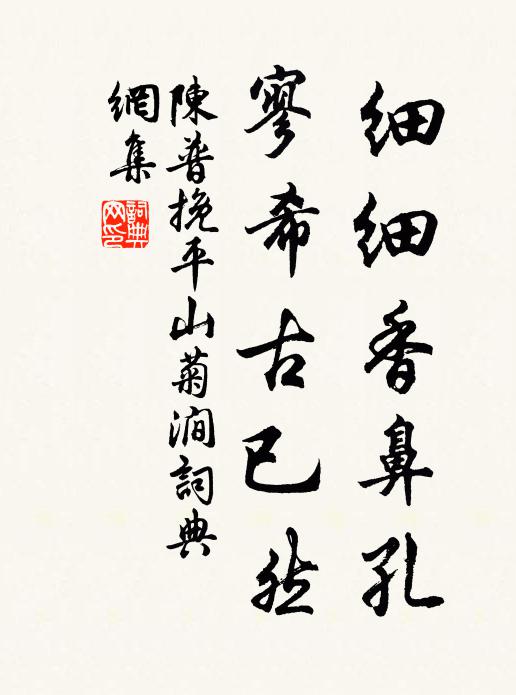 細細香鼻孔
寥希古已然
陳普挽平山菊澗詞典
網集
詞典網印